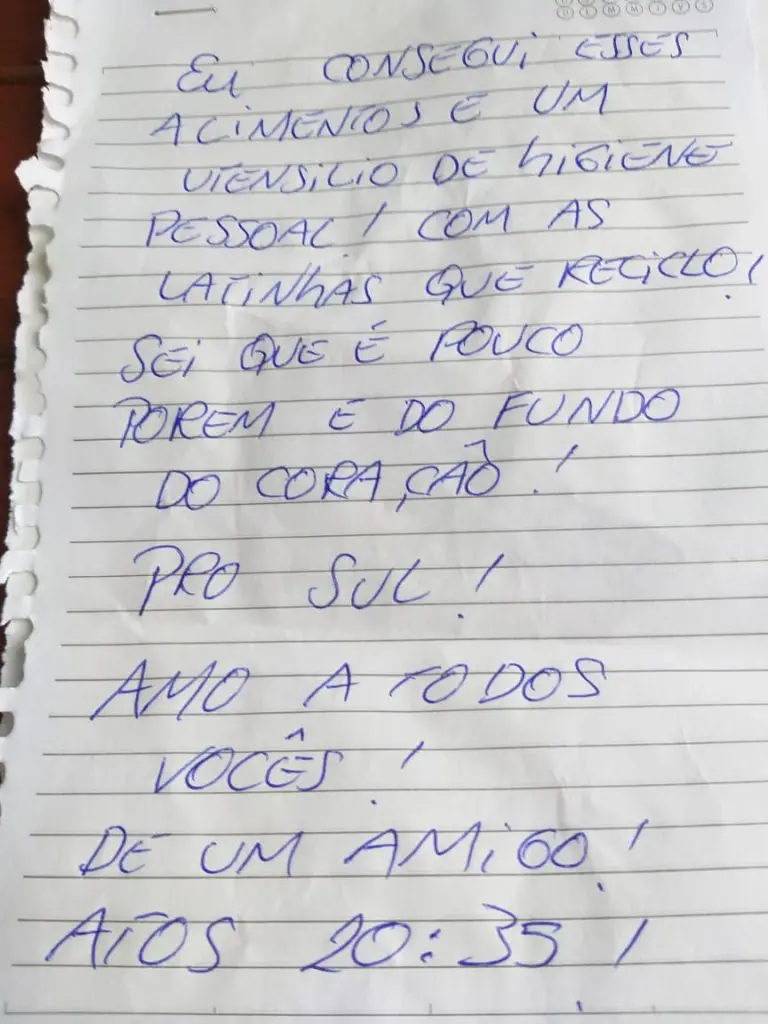 EU CONSEGUI ESSES
ALIMENTOS E UM
UTENSILIO DE HIGIENE
PESSOAL! COM AS
LATINHAS QUE RECICLO!
SEI QUE É POUCO
POREM E DO FUNDO
DO CORAÇÃO!
PRO SUL!
AMO A TODOS
VOCÊS!
DE UM AMIGO!
ATOS 20:35!